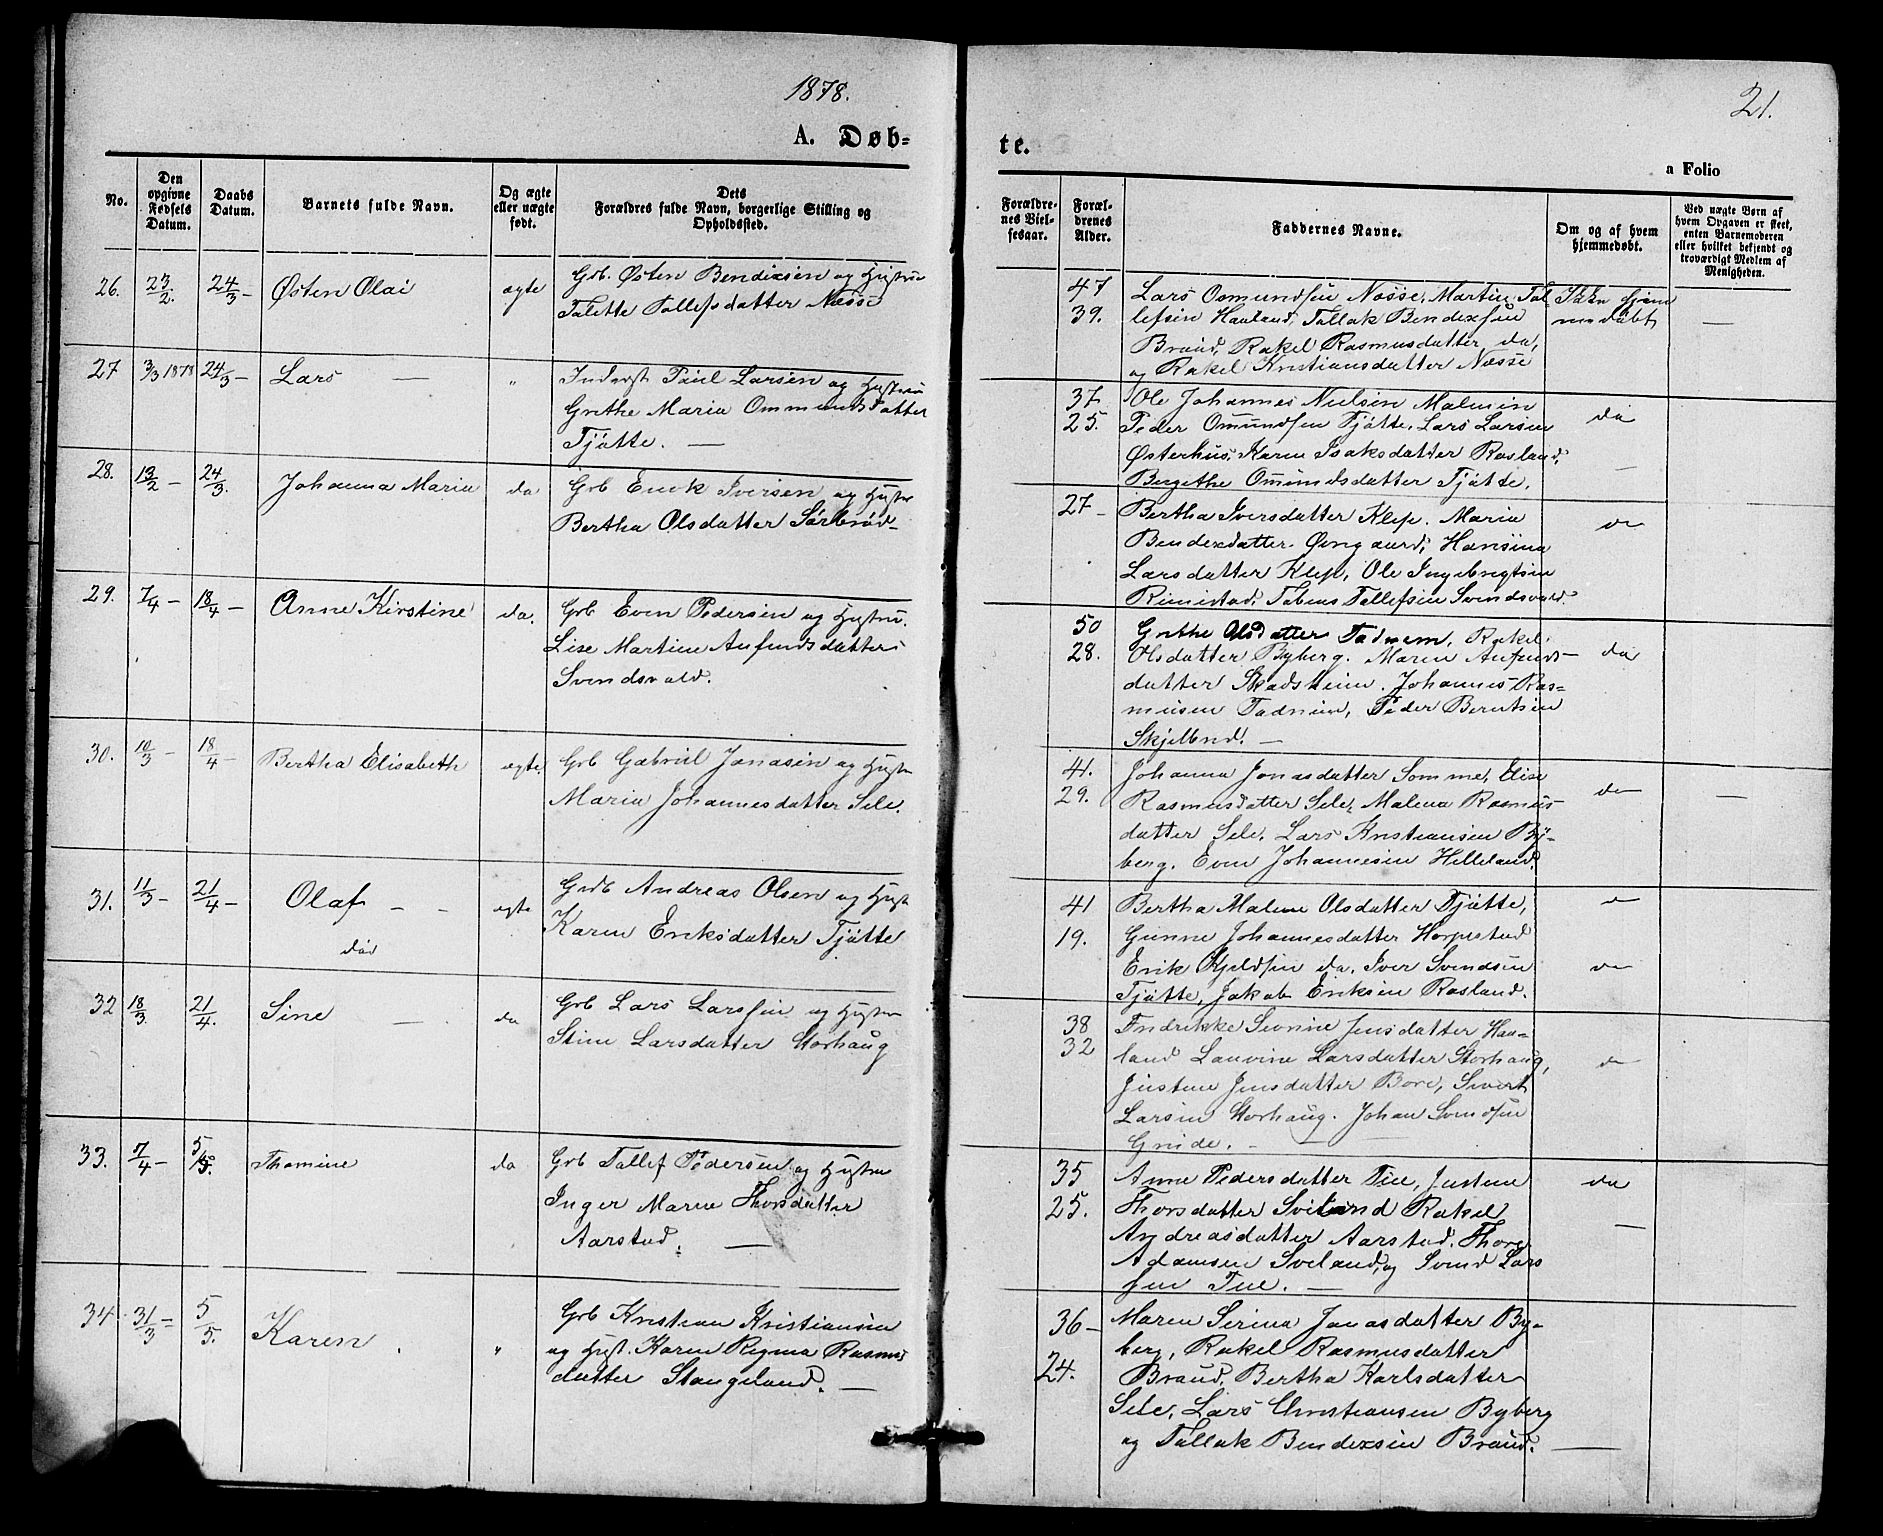 1878.
21.
A. Døb-
te.
a Folio
No.
Den opgivne Fødsels Datum.
Daabs Datum.
Barnets fulde Navn.
Og ægte eller uægte født.
Dets Forældres fulde Navn, borgerlige Stilling og Opholdssted.
Forældrenes Vielsesaar.
Forældrenes Alder.
Faddernes Navne.
Om og af hvem hjemmedøbt.
Ved uægte Børn af hvem Opgaven er skeet, enten Barnemoderen eller hvilket bekjendt og troværdigt Medlem af Menigheden.
26. 23/2. 24/3 - Østen Olai ægte Grb. Østen Bendixsen og Hustru
Talette Tollefsdatter Næsse
47 Lars Osmundsen Næsse, Martin Tol-
39. lefsen Hauland, Tallak Bendexsen
Braud, Rakel Rasmusdatter da,
og Rakel Kristiansdatter Næsse
Ikke hjem
medøbt —
27 3/3 1878 24/3 - Lars — " Inderst Paul Larsen og Hustru
Grethe Maria Ommundsdatter
Tjøtte. —
37 Ole Johannes Nielsen Malmin
25. Peder Omundsen Tjøtte, Lars Larsen
Østerhus, Karen Isaksdatter Rosland,
Bergithe Omundsdatter Tjøtte.
da —
28. 13/2 - 24/3. Johanna Maria da Grb Enok Iversen og Hustru
Bertha Olsdatter Sørbrød-
27 - Bertha Iversdatter Klep. Maria
Bendexdatter Øvrgaard, Hansina
Larsdatter Klep, Ole Ingebregtsen
Rimestad, Tobias Tollefsen Svendsvold.
da
29. 7/4 - 18/4 - Anne Kirstine da. Grb Even Pedersen og Hustru.
Lise Martine Aufindsdatter
Svendsvold.
50 Grethe Olsdatter Tadnem, Rakel
28. Olsdatter Byberg. Maren Aufinds-
datter Skadsheim. Johannes Ras-
musen Tadnem, Peder Berntsen
Skjelbred. —
da
30. 10/3 - 18/4 - Bertha Elisabeth ægte Grb Gabriel Jonasen og Hustru
Maria Johannesdatter Sele.
41. Johanna Jonasdatter Somme, Elise
29. Rasmusdatter Sele, Malena Rasmus-
datter Sele, Lars Kristiansen By-
berg. Even Johannesen Helleland.
da —
31. 11/3 - 21/4 - Olaf - - ægte Grdb Andreas Olsen og Hust
død
Karen Eriksdatter Tjøtte
41 Bertha Malene Olsdatter Tjøtte,
19. Gunne Johannesdatter Horpestad
Erik Kjeldsen da, Iver Svendsen
Tjøtte, Jakob Eriksen Rosland.
da
32 18/3 21/4. Sine — da Grb Lars Larssen og Hustru
Stine Larsdatter Storhaug
38 Fredrikke Sevrine Jensdatter Hau-
32 land Lauvina Larsdatter Storhaug,
Justine Jensdatter Bore, Sivert
Larsen Storhaug. Johan Svendsen
Grude. —
da
33. 7/4 - 5/5. Thomine da Grb Tollef Pedersen og Hustru
Inger Maren Thorsdatter
Aarstad. —
35 Anne Pedersdatter Tue, Justine
25. Thorsdatter Sviland Rakel
Andreasdatter Aarstad. Thore
Adamsen Sveland, og Svend Lars
sen Tue. —
da —
34 31/3 - 5/5. Karen . " Grb Kristian Kristiansen
og Hust. Karen Regina Rasmus
datter Stangeland. —
36 - Maren Serina Jonasdatter By-
24. berg, Rakel Rasmusdatter
Braud, Bertha Karlsdatter
Sele, Lars Christiansen Byberg
og Tallak Bendexsen Braud. —